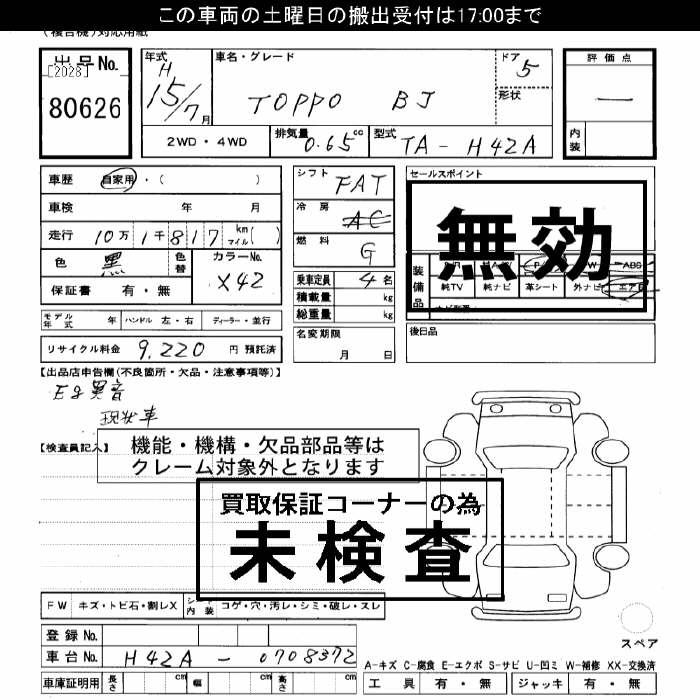 この車両の土曜日の搬出受付は17:00まで
(複合機)対応用紙
出品No.
[2028]
80626
年式
H
15/7月
車名・グレード
TOPPO BJ
ドア
5
形状
評価点
—
内装
2WD・4WD
排気量
0.65cc
型式
TA-H42A
車歴 自家用・( )
車検 年 月
走行 10万1千817 km マイル( )
色 黒
色替
カラーNo.
X42
保証書 有・無
シフト
FAT
冷房
AC
燃料
G
乗車定員 4名
積載量 kg
総重量 kg
セールスポイント
無効
装備品
ABS
純TV 純ナビ 革シート 外ナビ エアB
モデル年式 年 ハンドル 左・右 ディーラー・並行
名変期限
月 日
後日品
リサイクル料金 9,220 円 預託済
【出品店申告欄(不良箇所・欠品・注意事項等)】
Eg異音
現状車
【検査員記入】
機能・機構・欠品部品等は
クレーム対象外となります
買取保証コーナーの為
未検査
FW キズ・トビ石・割レX
シート内装 コゲ・穴・汚レ・シミ・破レ・スレ
登録No.
車台No. H42A-0708372
車庫証明用 長さ cm 幅 cm 高さ cm
スペア
A-キズ C-腐食 E-エクボ S-サビ U-凹ミ W-補修 XX-交換済
工具 有・無 ジャッキ 有・無